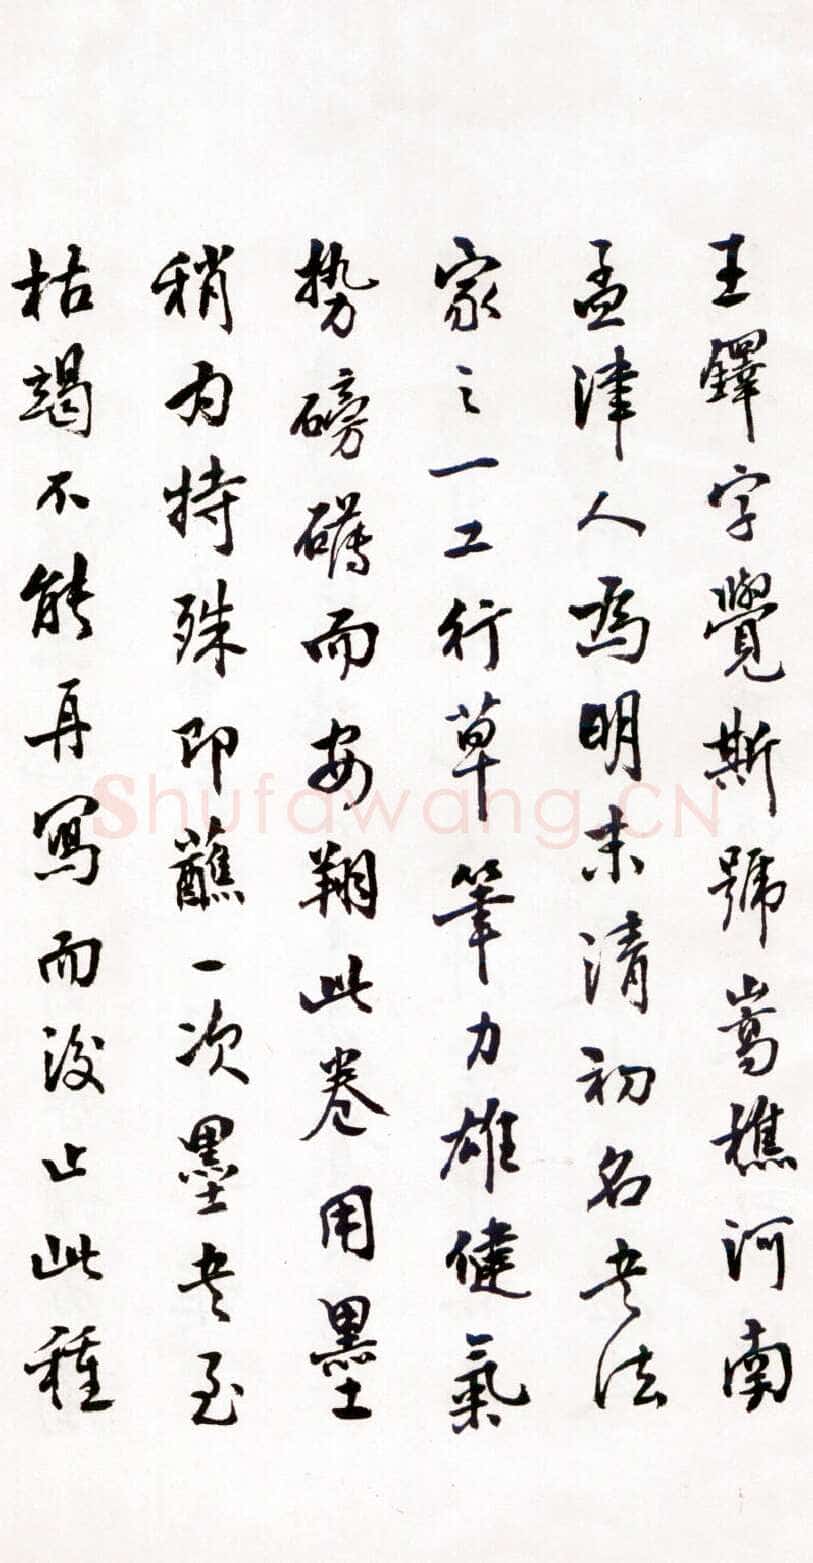 王鐸字覺斯號嵩樵河南
孟津人爲明末清初名書法
家之一工行草筆力雄健氣
勢磅礴而安翔此卷用墨
稍为特殊即蘸一次墨書至
枯竭不能再寫而後止此種
Shufawang.CN